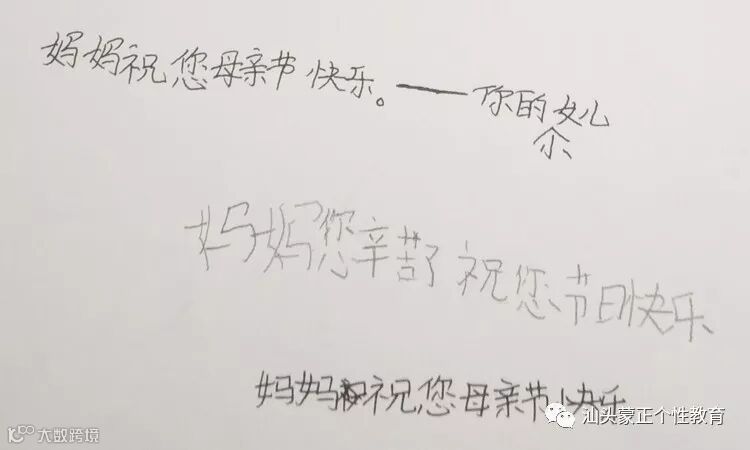 妈妈祝您母亲节快乐。——你的女儿
尒
妈妈您辛苦了祝您节日快乐
妈妈祝您母亲节快乐
汕头蒙正个性教育
大数跨境